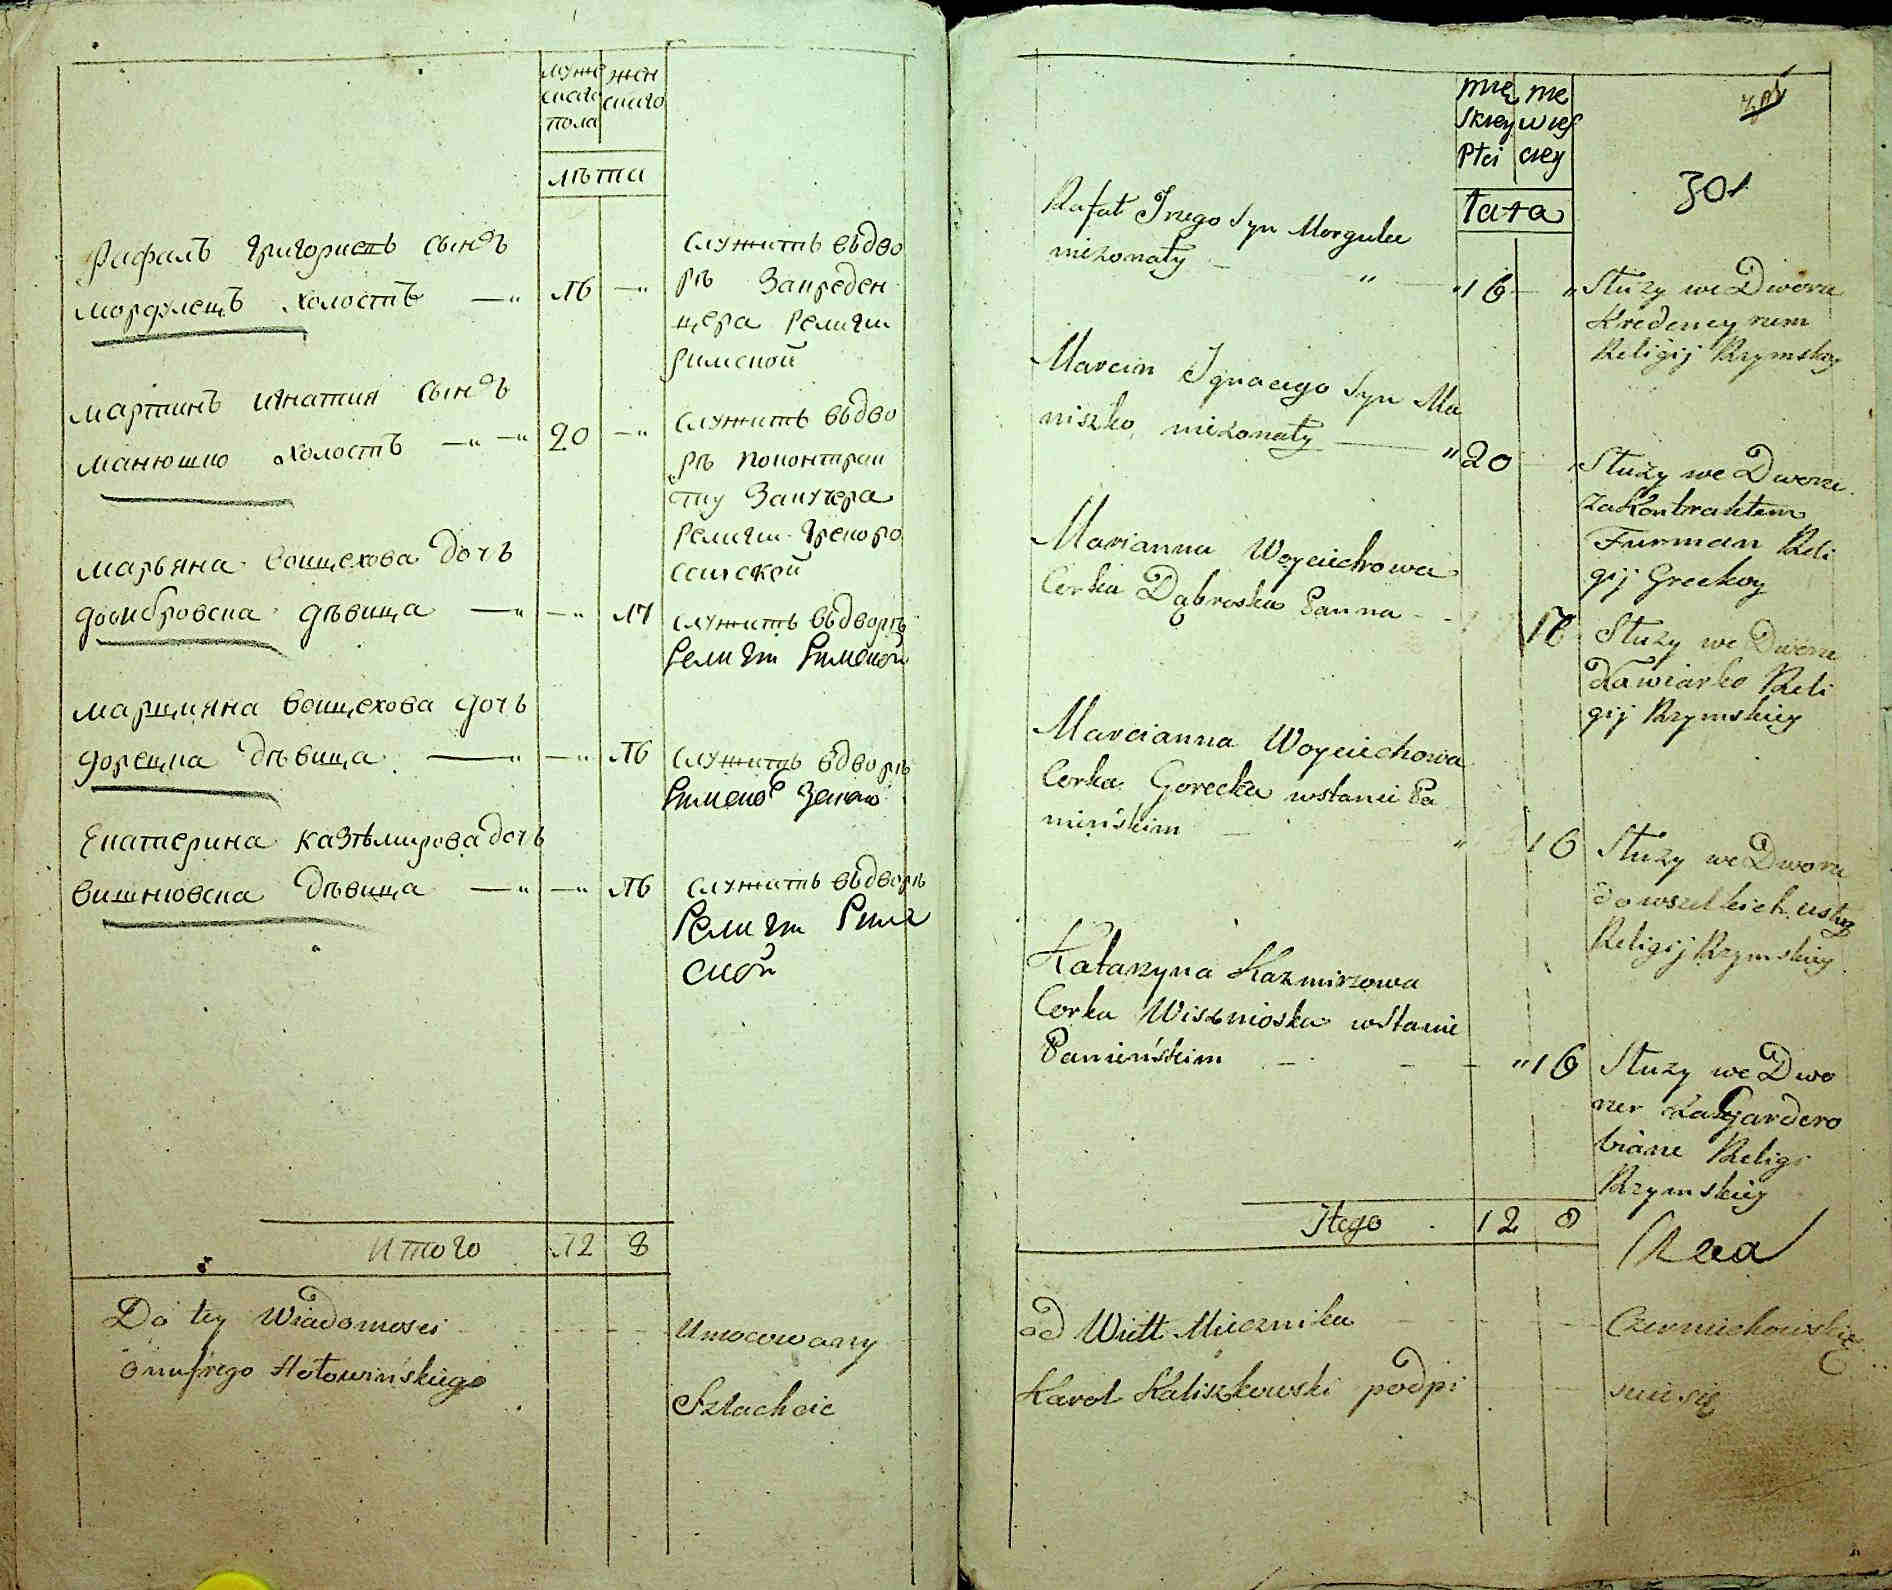 муже жен
скаго скаго
пола
лѣта
Рафалъ Григориевъ сынъ
моргулецъ холостъ 16
служитъ въдво
рѣ Закреден
цера Религи
римской
мартинъ игнатия сынъ
манюшко холостъ 20
служитъ въдво
рѣ поконтрак
ту Закучера
Религи Грекоро
сийской
марьяна воицехова дочъ
домбровска дѣвица 17
служитъ въдворѣ
Религи Римской
марцияна воицехова дочъ
горецка дѣвица 16
служитъ вдворѣ
Екатерина казѣмирова дочъ
вишнювска дѣвица 16
служитъ въдворѣ
Религи Рим
ской
итого 12 8
Do tey Wiadomosci Umocowany
Onufrego Hołowińskiego Szlachcic
mię nie
skiey wieś
Płci ciey
lata
301
Rafał Grzego Syn Morgulec
nieżonaty 16
Służy we Dworze
Kredencyrzem
Religij Rzymskiey
Marcin Ignacego Syn Ma
niszko nieżonaty 20
Służy we Dworze
za Kontraktem
Furman Reli
gij Greckiey
Marianna Woyciechowa
Corka Dąbroska Panna 17
Służy we Dworze
Kawiarko Reli
gij Rzymskiey
Marcianna Woyciechowa
Corka Gorecka wstanie Pa
nieńskim 16
Służy we Dworze
do wszelkich usług
Religij Rzymskiey
Katarzyna Kazmirzowa
Corka Wisznioska wstanie
Panieńskim 16
Służy we Dwo
rze za Gardero
biane Religi
Rzymskiey
Itego 12 8
od Wiell Miecznika Czerniechowskie
Karol Kaliszkowski podpi suie się